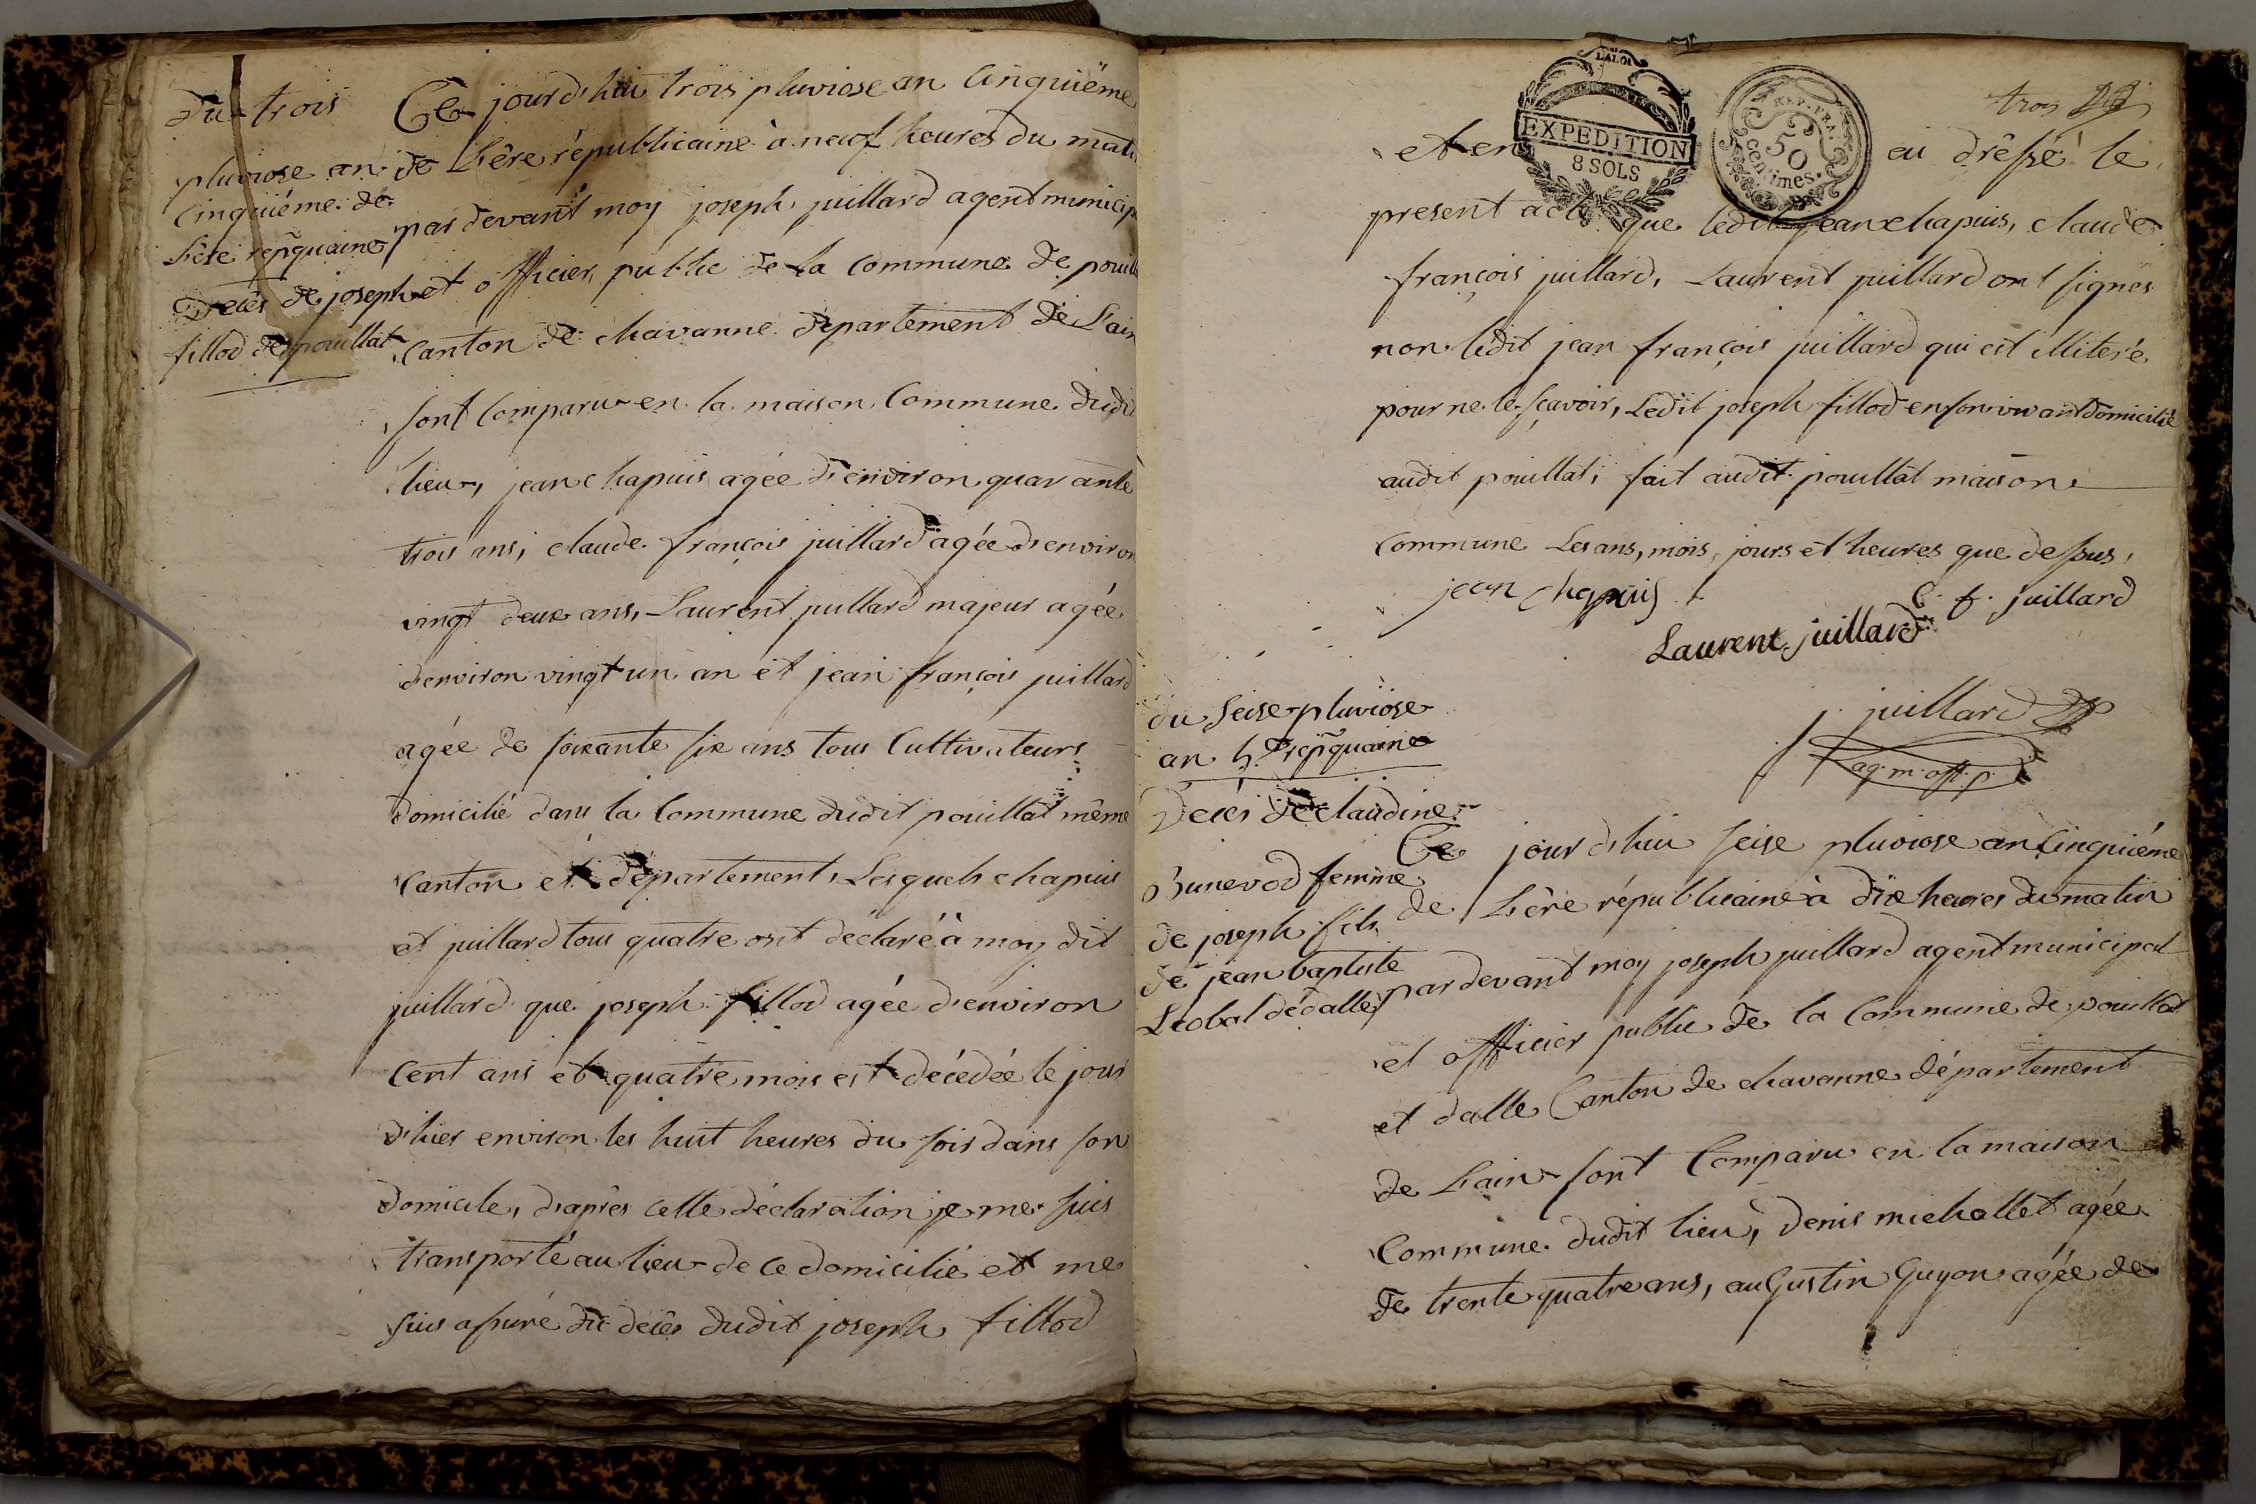 du trois
pluviose an
Cinquiéme de
L'ère rep̃quaine
Décès de joseph
fillod de pouillat
Ce jourd'hui trois pluviose an Cinquiéme
de L'ère républicaine à neuf heures du matin
par devant moy joseph juillard agent municip
et officier public de la Commune de pouill
Canton de chavanne département de L'ain
sont Comparu en la maison Commune dudit
lieu, jean chapuis agée d'environ quarante
trois ans, claude françois juillard agée d'environ
vingt deux ans, Laurent juillard majeur agée
d'environ vingt un an et jean françois juillard
agée de soixante six ans tous Cultivateurs
domicilié dans la Commune dudit pouillat même
Canton et département, Lesquels chapuis
et juillard tous quatre ont déclaré à moy dit
juillard que joseph fillod agée d'environ
Cent ans et quatre mois est décédée le jour
d'hier environ les huit heures du soir dans son
domicile, d'après cette déclaration je me suis
transporté au lieu de ce domicilié et me
suis assuré du décès dudit joseph fillod
LA LOI
EXPEDITION
8 SOLS
REP. FRA.
50
centimes.
trois
et en ai dréssé le
present acte que ledit jean chapuis, claude
françois juillard, Laurent juillard ont signés
non ledit jean françois juillard qui est illiteré
pour ne le sçavoir, Ledit joseph fillod en son vivant domicilié
audit pouillat; fait audit pouillat maison
Commune Les ans, mois, jours et heures que dessus,
jean chapuis
C. f. juillard
Laurent juillard
j. juillard
ag. m. off. p.
du seise pluviôse
an 5 rep̃quaine
Décès de claudine
Bunevod femme
de joseph fils
de jean baptiste
Leobal de dalle
Ce jour d'hui seise pluviose an Cinquiéme
de L'ère républicaine à dix heures du matin
par devant moy joseph juillard agent municipal
et officier public de la Commune de pouillat
et dalle Canton de chavanne département
de L'ain sont Comparu en la maison
Commune dudit lieu, denis michallet agée
de trente quatre ans, auGustin Guyon agée de